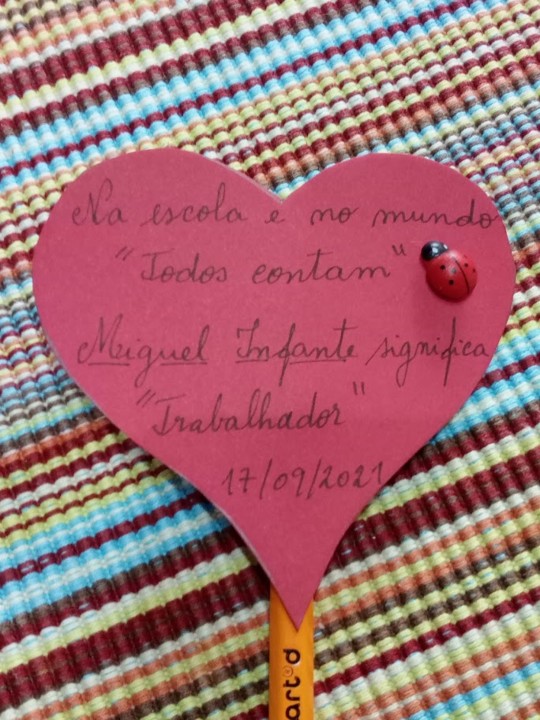 Na escola e no mundo
"Todos contam"
Miguel Infante significa
"Trabalhador"
17/09/2021